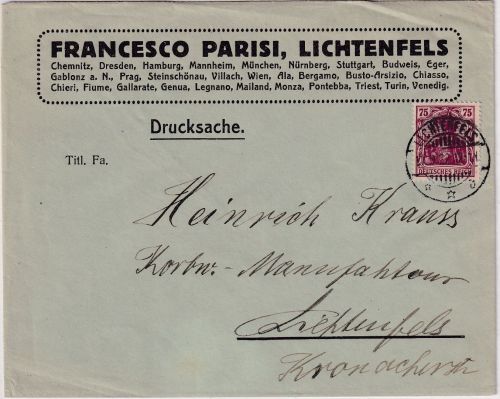 FRANCESCO PARISI, LICHTENFELS
Chemnitz, Dresden, Hamburg, Mannheim, München, Nürnberg, Stuttgart, Budweis, Eger,
Gablonz a. N., Prag, Steinschönau, Villach, Wien, Ala, Bergamo, Busto-Arsizio, Chiasso,
Chieri, Fiume, Gallarate, Genua, Legnano, Mailand, Monza, Pontebba, Triest, Turin, Venedig.
Drucksache.
75 75
LICHTENFELS
DEUTSCHES REICH
Titl. Fa.
Heinrich Krauss
Korbw.-Manufaktour
Lichtenfels
Kronacherstr